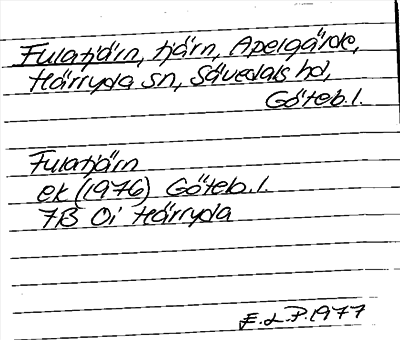 Fulatjärn, tjärn, Apelgärde,
Härryda sn, Sävedals hd,
Göteb. l.
Fulatjärn
ek (1976) Göteb. l.
7B 0i Härryda
E.L.P. 1977